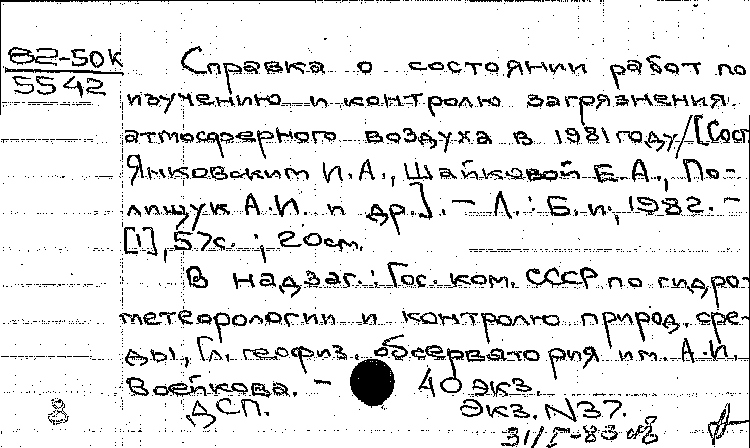 82-50К
5542
Справка о состоянии работ по
изучению и контролю загрязнения
атмосферного воздуха в 1981 году/[Сост.
Янковским И.А., Шайковой Е.А., По-
лищук А.И. и др.]. – Л.: Б.и., 1982. –
[1], 57с. ; 20см.
В надзаг.: Гос. ком. СССР по гидро-
метеорологии и контролю природ. сре-
ды, Гл. геофиз. обсерватория им. А.И.
Воейкова. – 40 экз.
ДСП. Экз. N37.
8 31/I-83